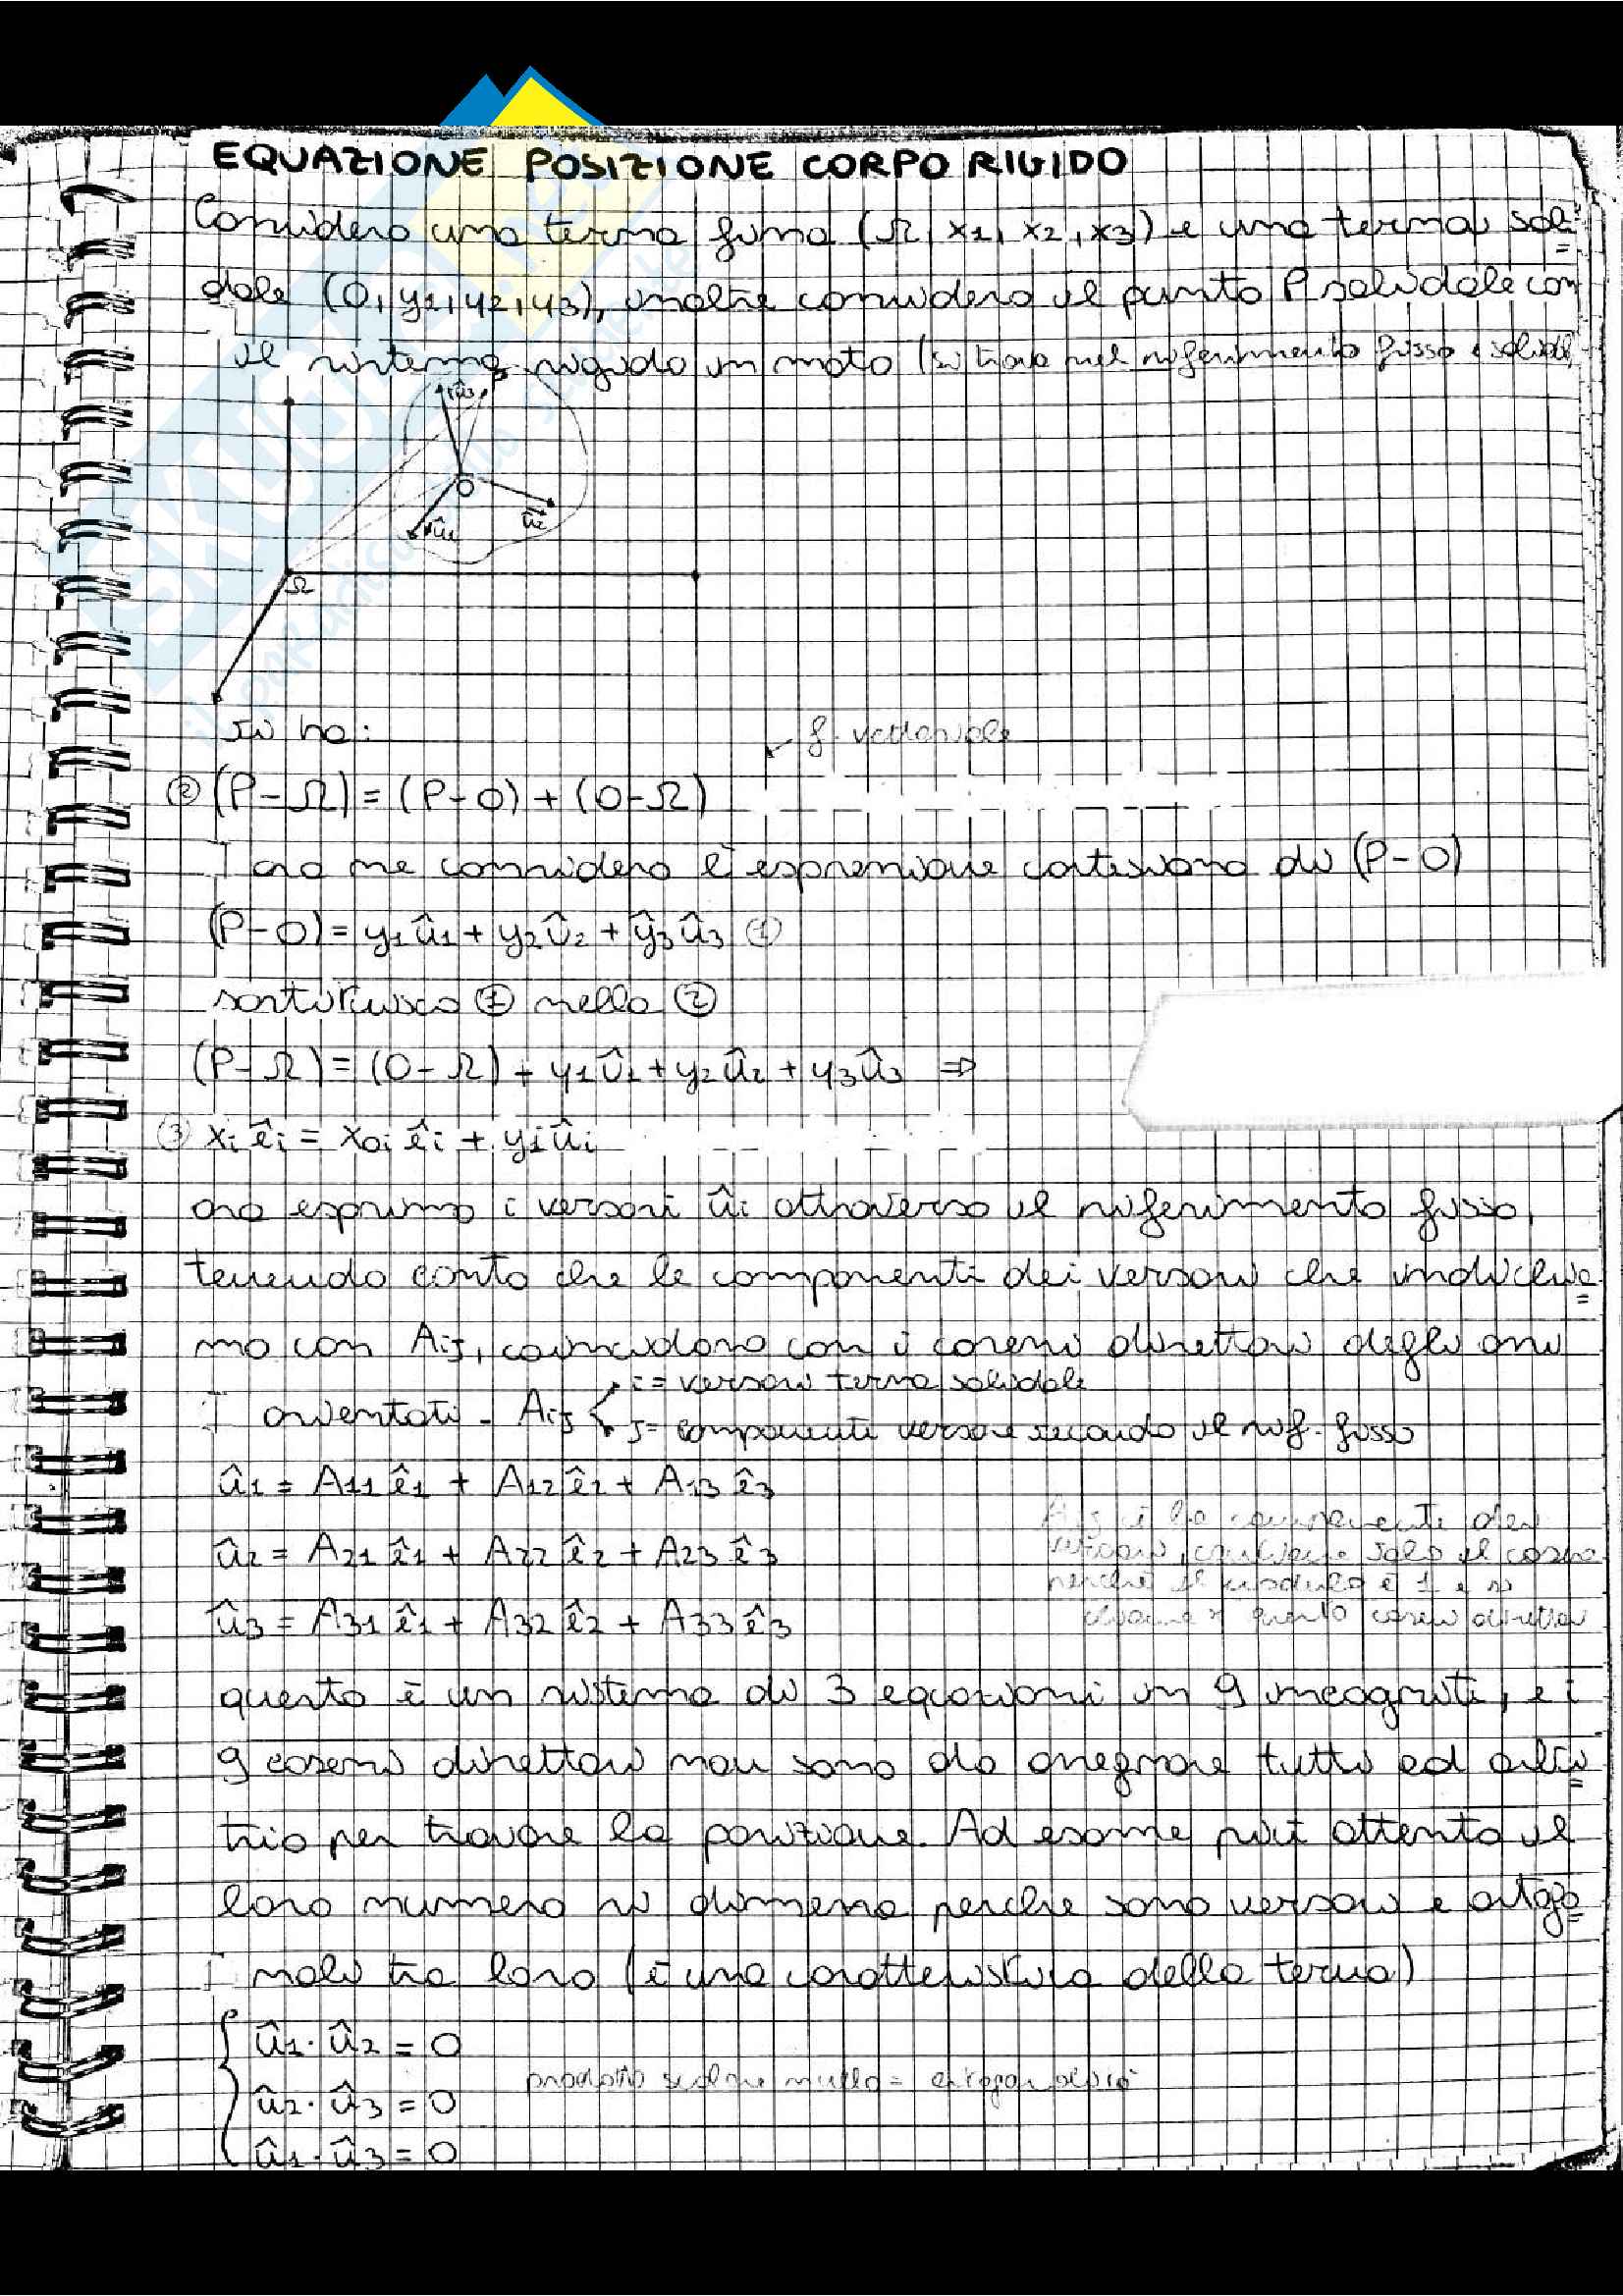 EQUAZIONE POSIZIONE CORPO RIGIDO
Considero una terna fissa (Ω, x1, x2, x3) e una terna soli=
dale (O, y1, y2, y3), inoltre considero il punto P solidale con
il sistema rigido in moto (si trova nel riferimento fisso e solidale
û3
P
O
û1
û2
Ω
si ha:
f. vettoriale
② (P-Ω) = (P-O) + (O-Ω)
ora me considero l'espressione cartesiana di (P-O)
(P-O) = y1û1 + y2û2 + ŷ3û3 ①
sostituisco ① nella ②
(P-Ω) = (O-Ω) + y1û1 + y2û2 + y3û3 ⇒
③ xi êi = xoi êi + yi ûi
ora esprimo i versori ûi attraverso il riferimento fisso,
tenendo conto che le componenti dei versori che indichia=
mo con Aij, coincidono con i coseni direttori degli assi
orientati - Aij
i = versori terna solidale
j = componenti versore secondo il rif. fisso
û1 = A11 ê1 + A12 ê2 + A13 ê3
û2 = A21 ê1 + A22 ê2 + A23 ê3
û3 = A31 ê1 + A32 ê2 + A33 ê3
Aij è la componente dei
versori, contiene solo il coseno
perché il modulo è 1 e si
chiama x questo coseni direttori
questo è un sistema di 3 equazioni in 9 incognite, e i
9 coseni direttori non sono da assegnare tutti ad arbi=
trio per trovare la posizione. Ad esame più attento il
loro numero si dimezza perche sono versori e ortogo=
nali tra loro (è una caratteristica della terna)
û1 · û2 = 0
û2 · û3 = 0
û1 · û3 = 0
prodotto scalare nullo = ortogonalità